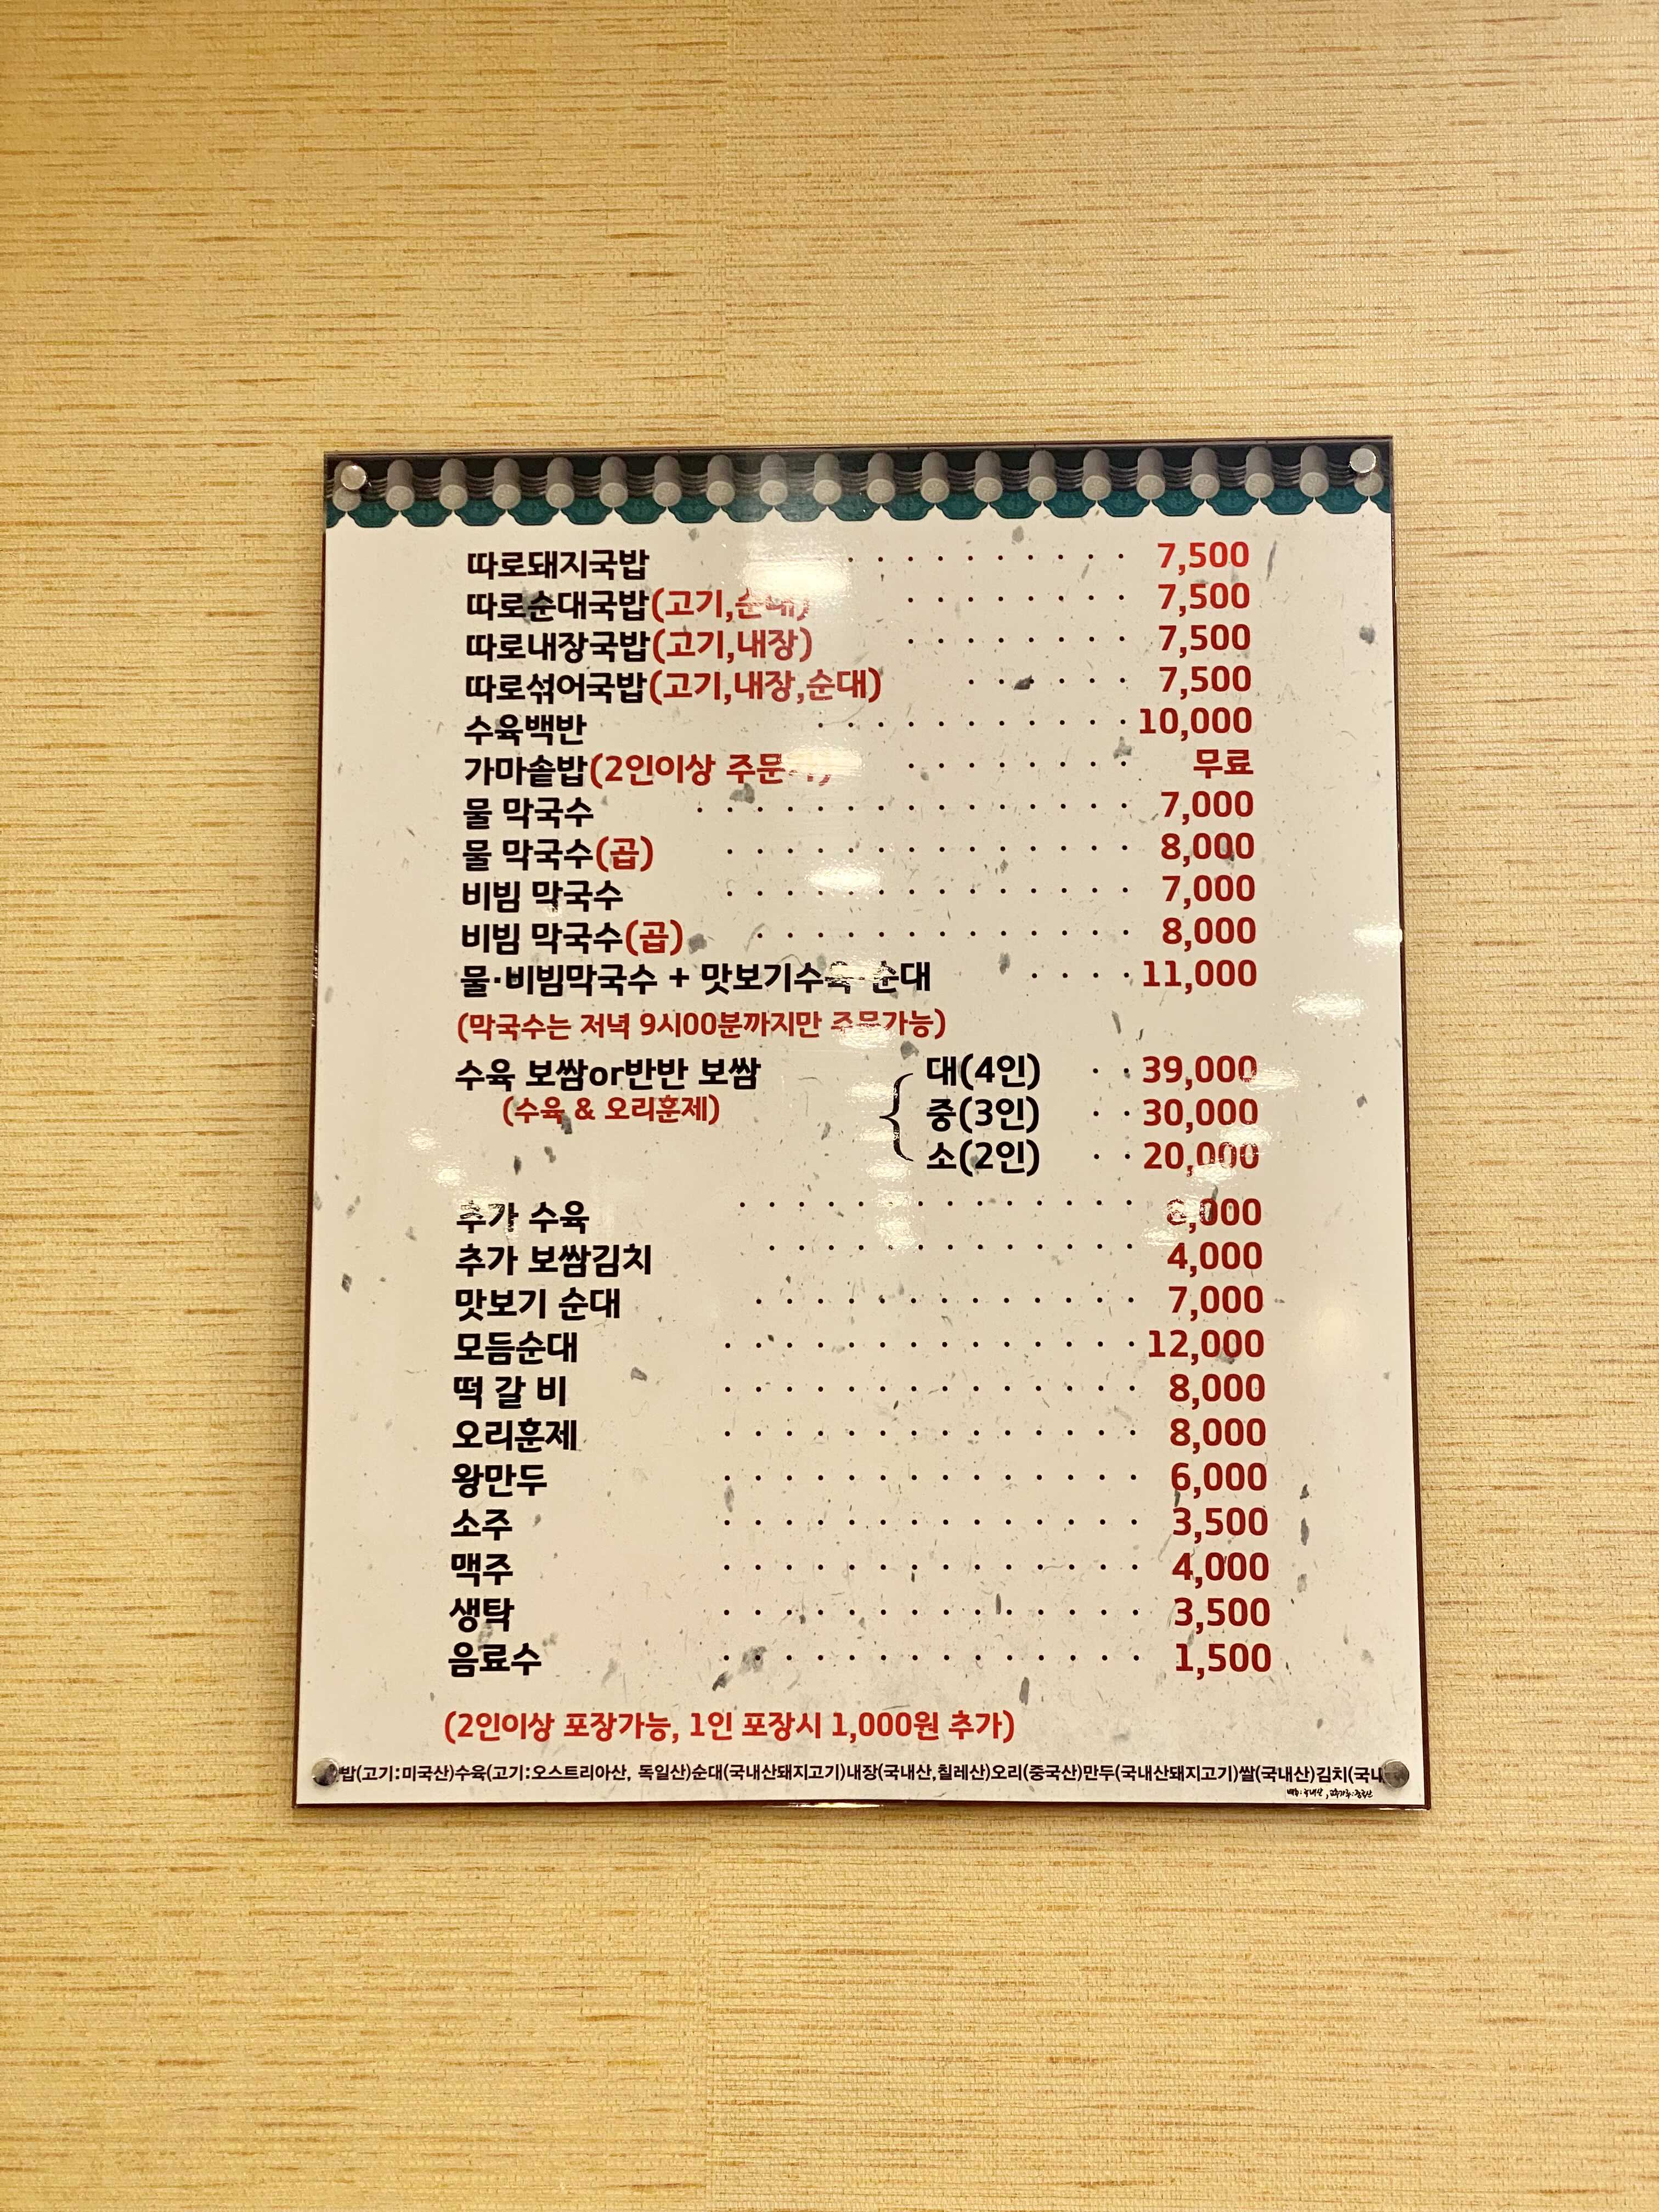 따로돼지국밥 7,500
따로순대국밥(고기,순대) 7,500
따로내장국밥(고기,내장) 7,500
따로섞어국밥(고기,내장,순대) 7,500
수육백반 10,000
가마솥밥(2인이상 주문시) 무료
물 막국수 7,000
물 막국수(곱) 8,000
비빔 막국수 7,000
비빔 막국수(곱) 8,000
물·비빔막국수 + 맛보기수육·순대 11,000
(막국수는 저녁 9시00분까지만 주문가능)
수육 보쌈or반반 보쌈
(수육 & 오리훈제)
대(4인) 39,000
중(3인) 30,000
소(2인) 20,000
추가 수육
추가 보쌈김치 4,000
맛보기 순대 7,000
모듬순대 12,000
떡 갈 비 8,000
오리훈제 8,000
왕만두 6,000
소주 3,500
맥주 4,000
생탁 3,500
음료수 1,500
(2인이상 포장가능, 1인 포장시 1,000원 추가)
밥(고기:미국산)수육(고기:오스트리아산, 독일산)순대(국내산돼지고기)내장(국내산,칠레산)오리(중국산)만두(국내산돼지고기)쌀(국내산)김치(국내